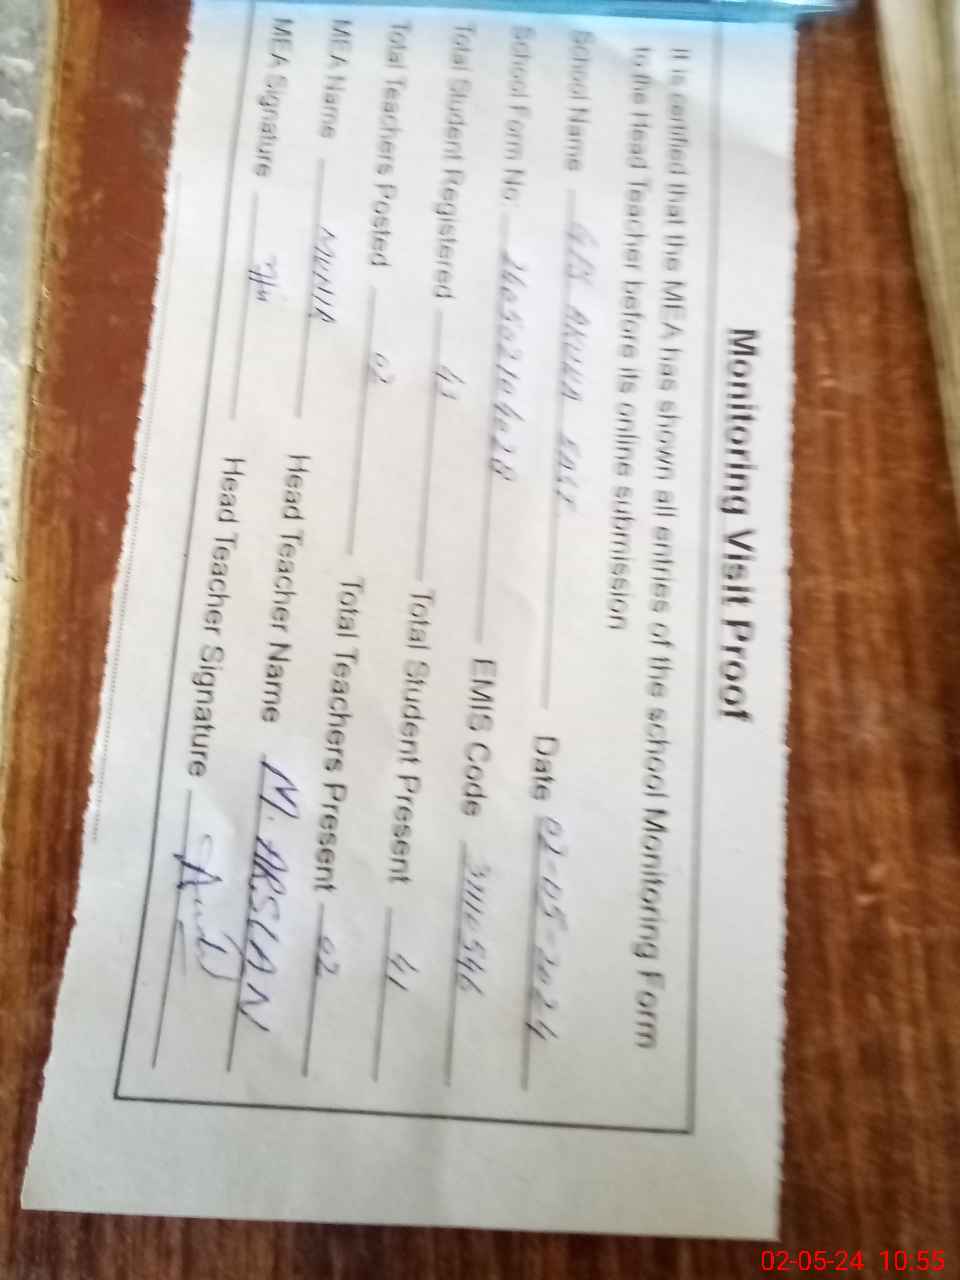 Monitoring Visit Proof
It is certified that the MEA has shown all entries of the school Monitoring Form
to the Head Teacher before its online submission
School Name Date 02-05-2024
School Form No. EMIS Code 31110546
Total Student Registered 41 Total Student Present 41
Total Teachers Posted 02 Total Teachers Present 02
MEA Name MUNIR Head Teacher Name M. ARSLAN
MEA Signature Head Teacher Signature
02-05-24 10:55